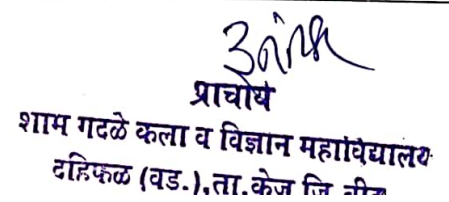 प्राचार्य
शाम गदळे कला व विज्ञान महाविद्यालय
दहिफळ (वड.),ता.केज जि.